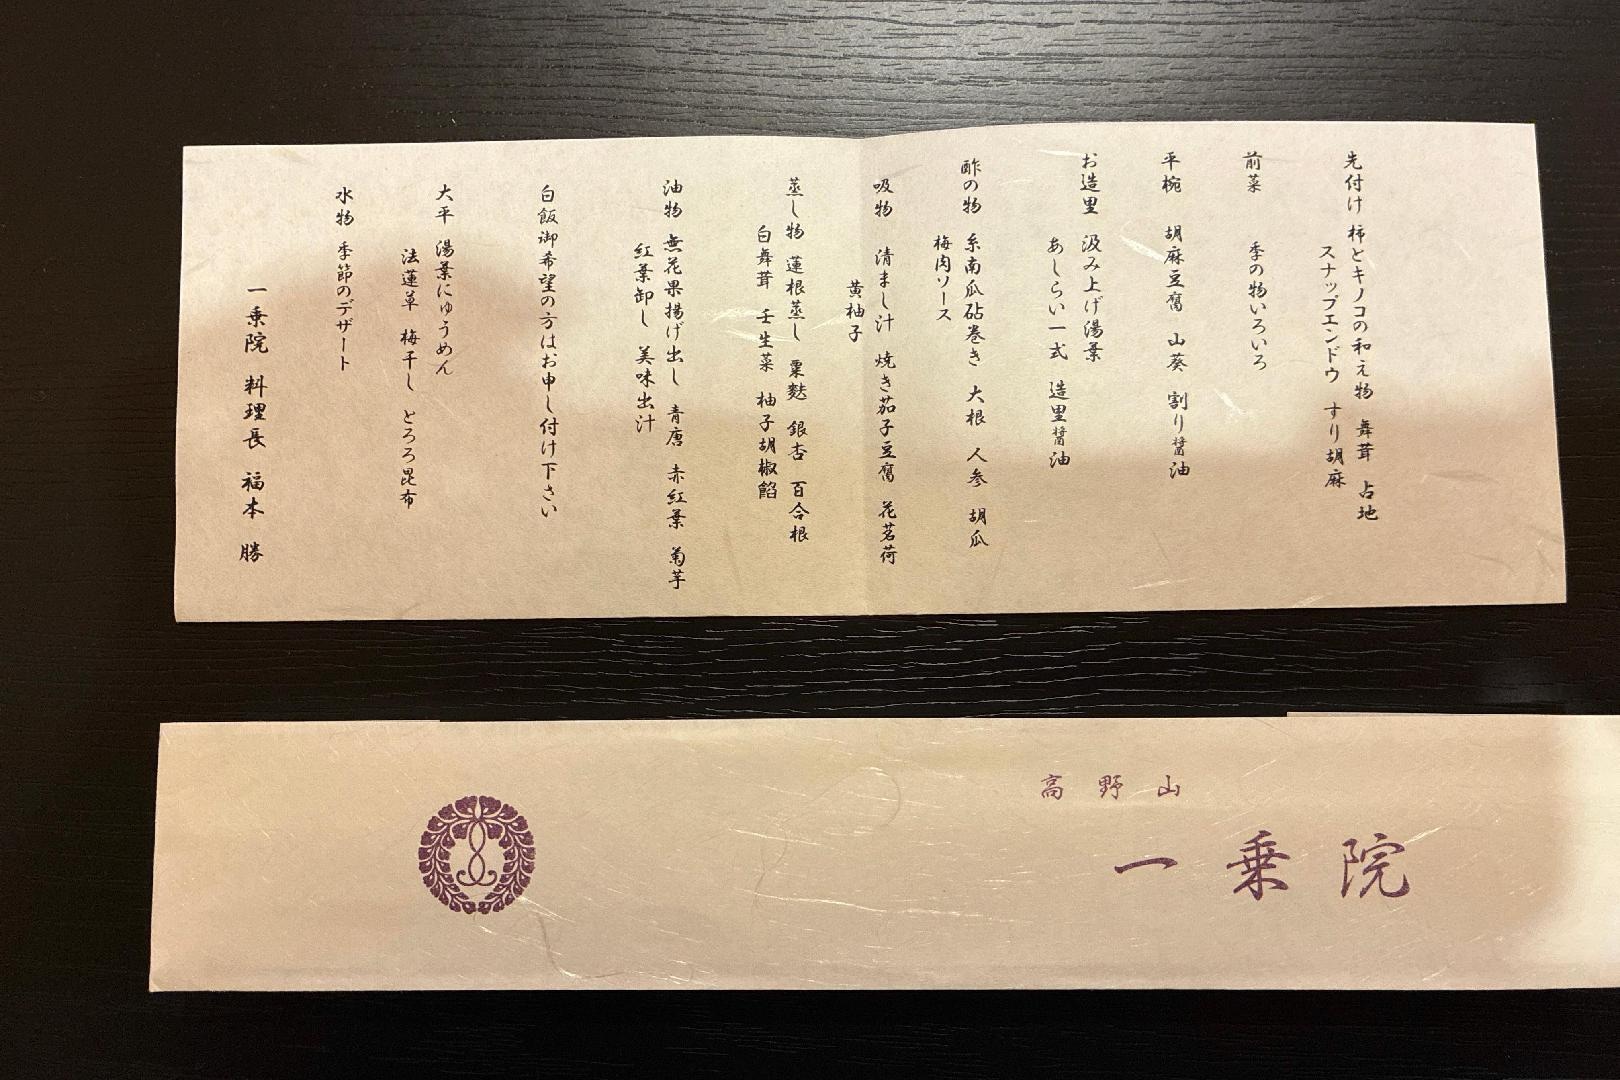 先付け 柿とキノコの和え物 舞茸 占地
スナップエンドウ すり胡麻
前菜 季の物いろいろ
平椀 胡麻豆腐 山葵 割り醤油
お造里 汲み上げ湯葉
あしらい一式 造里醤油
酢の物 糸南瓜砧巻き 大根 人参 胡瓜
梅肉ソース
吸物 清まし汁 焼き茄子豆腐 花茗荷
黄柚子
蒸し物 蓮根蒸し 粟麩 銀杏 百合根
白舞茸 壬生菜 柚子胡椒餡
油物 無花果揚げ出し 青唐 赤紅葉 菊芋
紅葉卸し 美味出汁
白飯御希望の方はお申し付け下さい
大平 湯葉にゅうめん
法蓮草 梅干し とろろ昆布
水物 季節のデザート
一乗院 料理長 福本 勝
高野山
一乗院